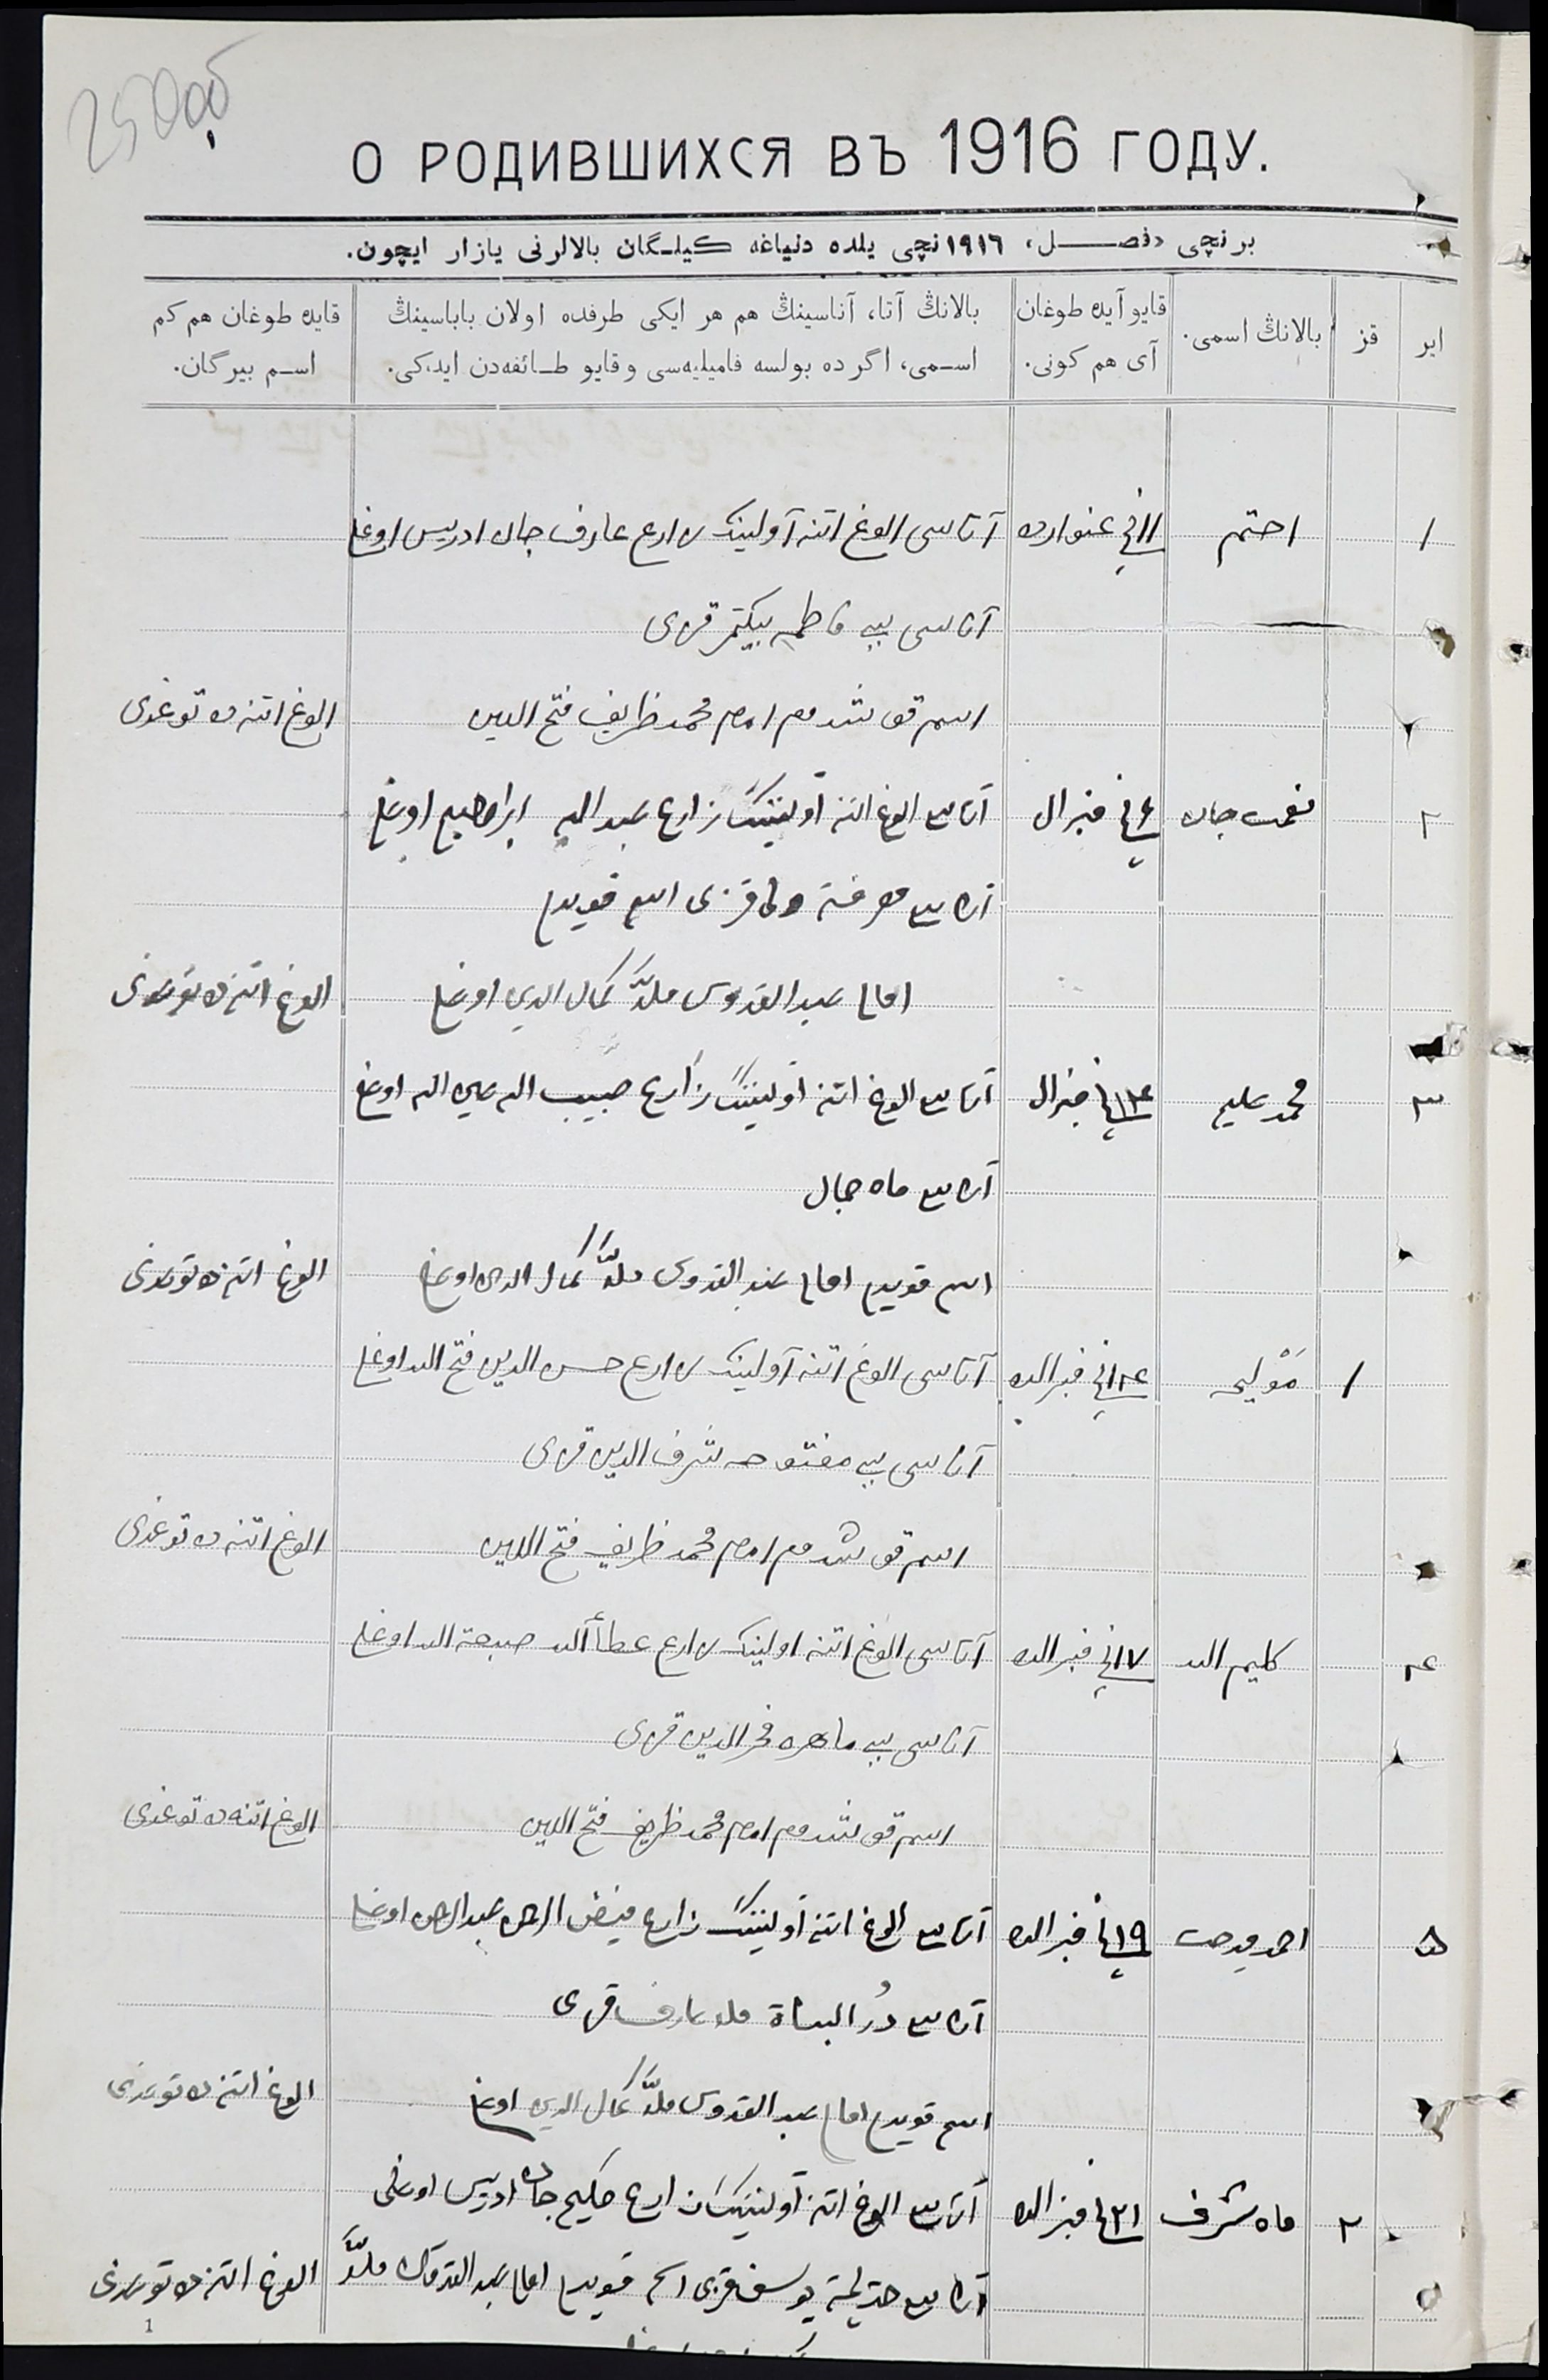 О РОДИВШИХСЯ ВЪ 1916 ГОДУ.
برنچی «فصل» ١٩١٦ نچی یلده دنیاغه کیلگان بالالرنی یازار ایچون.
ایر
قز
بالانڭ اسمی.
قایو آیده طوغان آی هم کونی.
بالانڭ آتا، آناسینڭ هم هر ایکی طرفده اولان باباسینڭ اسمی، اگر ده بولسه فامیلیه‌سی و قایو طائفه‌دن ایدکی.
قایده طوغان هم کم اسم بیرگان.
١ احتم ١١نچی غنوارده آتاسی الوغ اتنه آولینک زارع عارف جان ادریس اوغلی
آناسی بی بی فاطمه بیکتمر قزی
اسم قوشدم امام محمد ظریف فتح الدین الوغ اتنه ده توغدی
٢ نعمت جان ۶نچی فبرال آتاسی الوغ اتنه آولیننڭ زارع عبد الله ابراهیم اوغلی
آناسی معرفة ولی قزی اسم قویدم
امام عبد القدوس ملا کمال الدین اوغلی الوغ اتنه ده توغدی
٣ محمد علیم ١۴نچی فبرال آتاسی الوغ اتنه آولیننڭ زارع حبیب الله اوغلی
آناسی ماه جمال
اسم قویدم امام عبد القدوس ملا کمال الدین اوغلی الوغ اتنه ده توغدی
١ ١۴نچی فبرالده آتاسی الوغ اتنه آولینک زارع حسن الدین فتح الله اوغلی
آناسی بی بی مفتوحه شرف الدین قزی
اسم قوشدم امام محمد ظریف فتح الدین الوغ اتنه ده توغدی
۴ کلیم الله ١٧نچی فبرالده آتاسی الوغ اتنه اولینک زارع عطاء الله صبغة الله اوغلی
آناسی بی بی ماهره فخر الدین قزی
اسم قوشدم امام محمد ظریف فتح الدین الوغ اتنه ده توغدی
۵ احمد مدحت ١٩نچی فبرالده آتاسی الوغ اتنه آولیننڭ زارع فیض الرحمن عبد الرحمن اوغلی
آناسی دُر البنات ملا عارف قزی
اسم قویدم امام عبد القدوس ملا کمال الدین اوغلی الوغ اتنه ده توغدی
٢ ماه شرف ٢١نچی فبرالده آتاسی الوغ اتنه آولیننڭ زارع حکیم جان ادریس اوغلی
آناسی یوسف قزی اسم قویدم امام عبد القدوس ملا الوغ اتنه ده توغدی
1